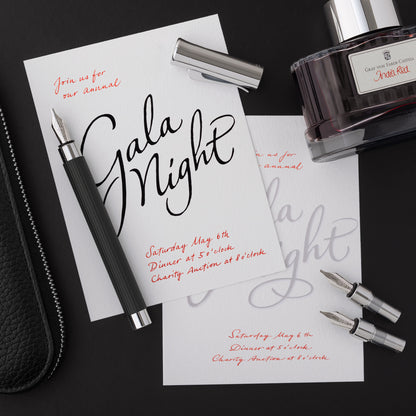 Join us for
our annual
Gala
Night
Saturday May 6th
Dinner at 5 o'clock
Charity Auction at 8 o'clock
in us for
annual
ala
Night
Saturday May 6th
Dinner at 5 o'clock
Charity Auction at 8 o'clock
GRAF VON FABER-CASTELL
India Red